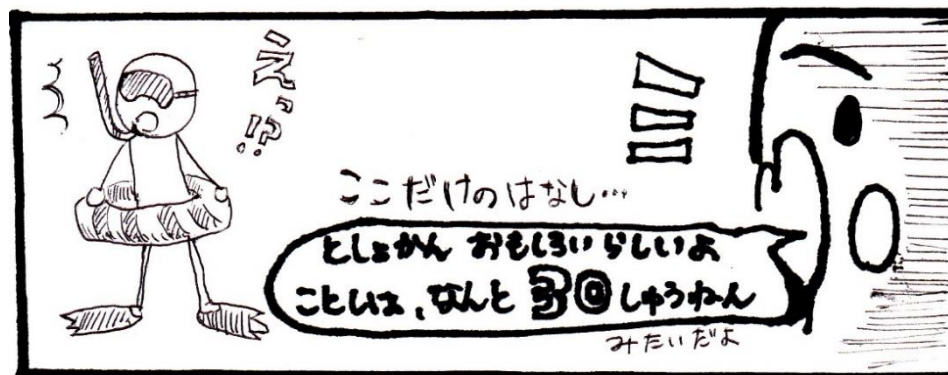 ここだけのはなし…
としょかん おもしろいらしいよ
ことしは、なんと 30しゅうねん
みたいだよ